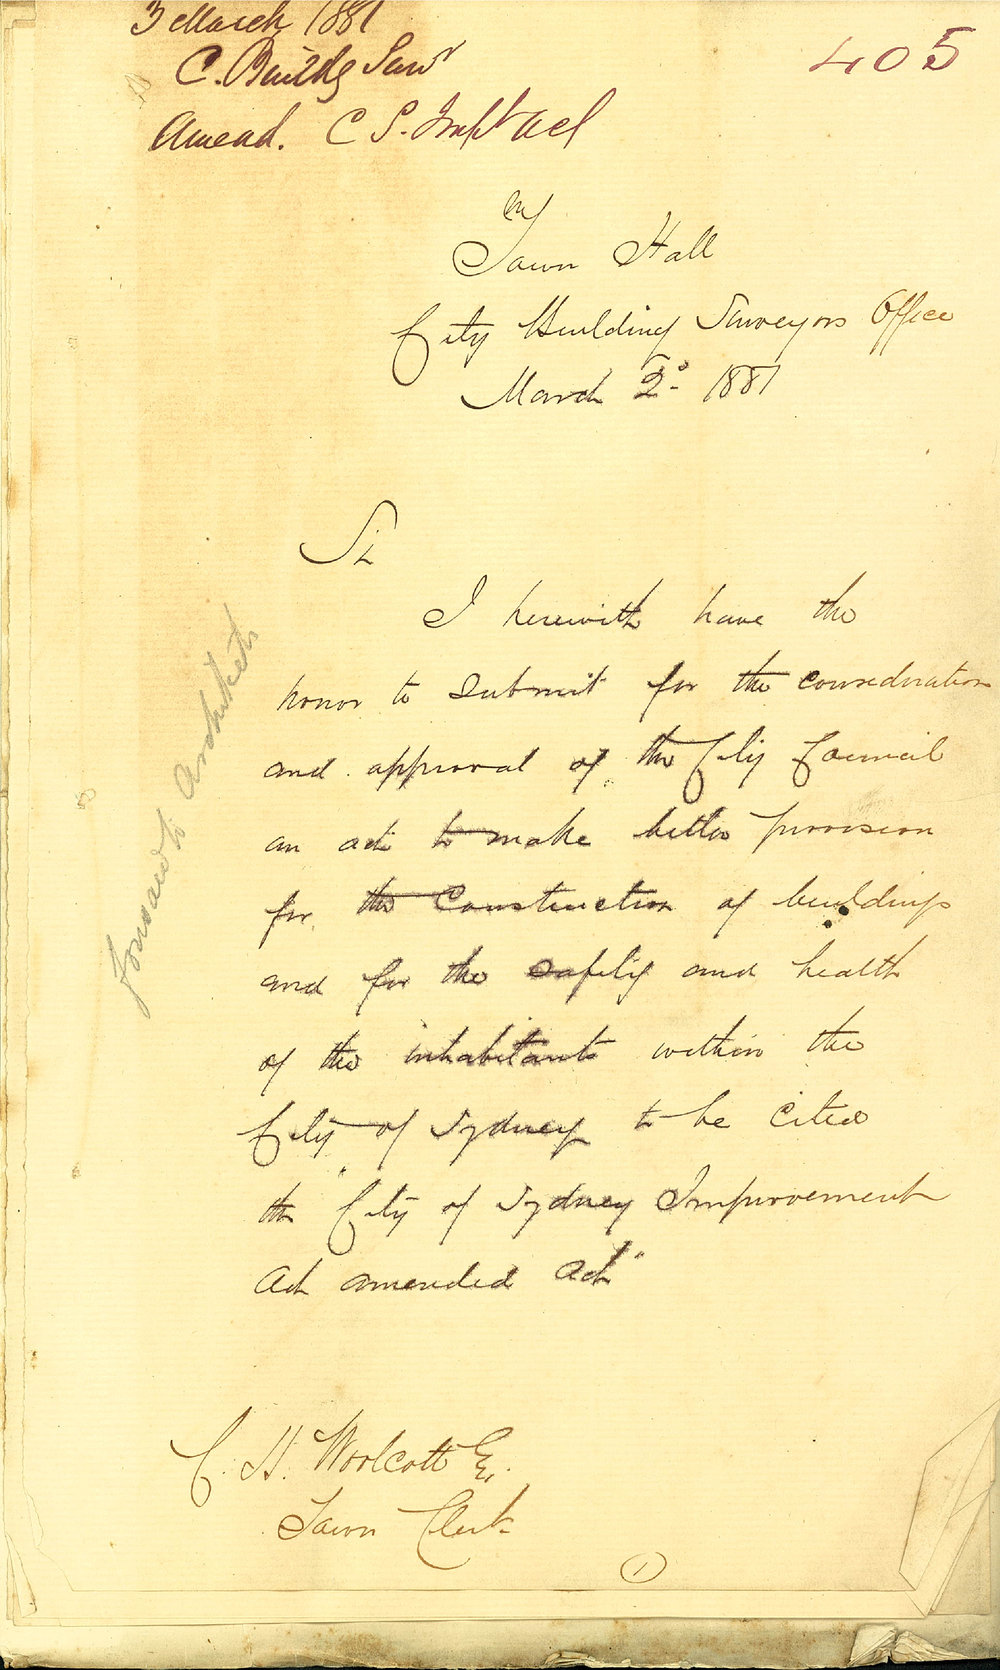 3 March 1881
C. Buildg Survr
Amend. C S. Impt Act
405
Town Hall
City Building Surveyors Office
March 2d 1881
Sir
I herewith have the
honor to submit for the consideration
and approval of the City Council
an act to make better provision
for the Construction of buildings
and for the safety and health
of the inhabitants within the
City of Sydney to be cited
the "City of Sydney Improvement
Act amended Act"
forward to Architects
C. H. Woolcott Esq.
Town Clerk
1